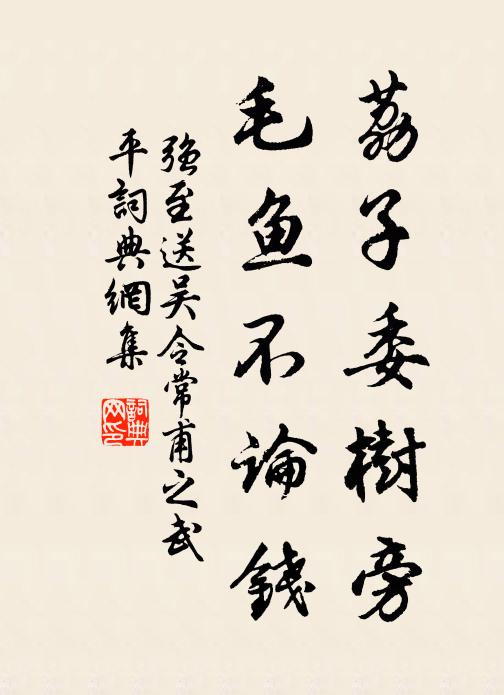 荔子委樹旁
毛鱼不論錢
強至送吴令常甫之武
平詞典網集
詞典
网印